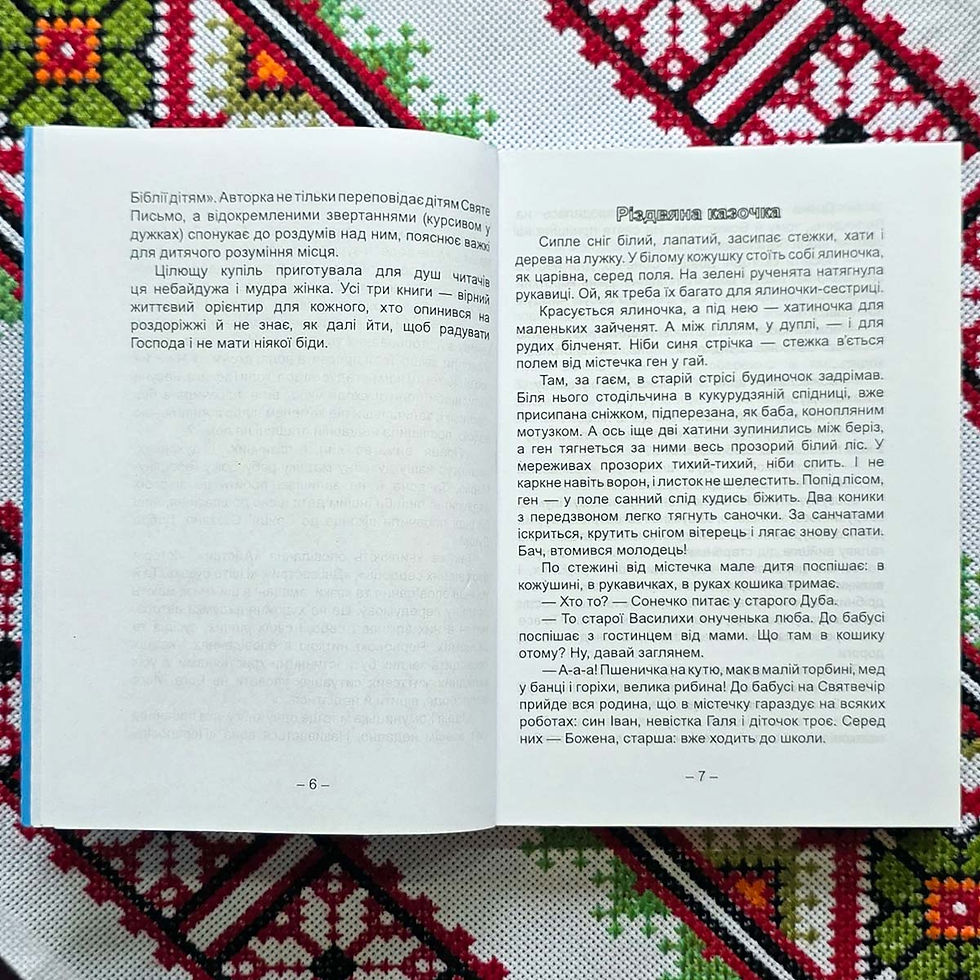 Біблії дітям». Авторка не тільки переповідає дітям Святе
Письмо, а відокремленими звертаннями (курсивом у
дужках) спонукає до роздумів над ним, пояснює важкі
для дитячого розуміння місця.
Цілющу купіль приготувала для душ читачів
ця небайдужа і мудра жінка. Усі три книги — вірний
життєвий орієнтир для кожного, хто опинився на
роздоріжжі й не знає, як далі йти, щоб радувати
Господа і не мати ніякої біди.
– 6 –
Різдвяна казочка
Сипле сніг білий, лапатий, засипає стежки, хати і
дерева на лужку. У білому кожушку стоїть собі ялиночка,
як царівна, серед поля. На зелені рученята натягнула
рукавиці. Ой, як треба їх багато для ялиночки-сестриці.
Красується ялиночка, а під нею — хатиночка для
маленьких зайченят. А між гіллям, у дуплі, — і для
рудих білченят. Ніби синя стрічка — стежка в'ється
полем від містечка ген у гай.
Там, за гаєм, в старій стрісі будиночок задрімав.
Біля нього стодільчина в кукурудзяній спідниці, вже
присипана сніжком, підперезана, як баба, конопляним
мотузком. А ось іще дві хатини зупинились між беріз,
а ген тягнеться за ними весь прозорий білий ліс. У
мереживах прозорих тихий-тихий, ніби спить. І не
каркне навіть ворон, і листок не шелестить. Попід лісом,
ген — у поле санний слід кудись біжить. Два коники
з передзвоном легко тягнуть саночки. За санчатами
іскриться, крутить снігом вітерець і лягає знову спати.
Бач, втомився молодець!
По стежині від містечка мале дитя поспішає: в
кожушині, в рукавичках, в руках кошика тримає.
— Хто то? — Сонечко питає у старого Дуба.
— То старої Василихи онученька люба. До бабусі
поспішає з гостинцем від мами. Що там в кошику
отому? Ну, давай заглянем.
— А-а-а! Пшеничка на кутю, мак в малій торбині, мед
у банці і горіхи, велика рибина! До бабусі на Святвечір
прийде вся родина, що в містечку гараздує на всяких
роботах: син Іван, невістка Галя і діточок троє. Серед
них — Божена, старша: вже ходить до школи.
– 7 –